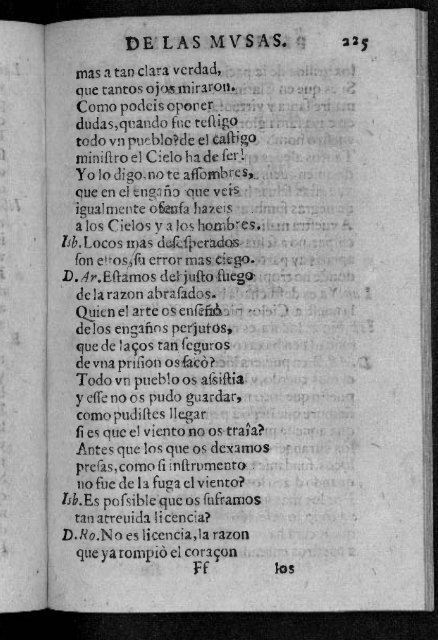 DE LAS MVSAS. 225
mas a tan clara verdad,
que tantos ojos miraron.
Como podeis oponer
dudas, quando fue testigo
todo vn pueblo? de el castigo
ministro el Cielo ha de ser!
Yo lo digo. no te assombres,
que en el engaño que veis
igualmente ofensa hazeis
a los Cielos y a los hombres.
Isb. Locos mas desesperados
son estos, su error mas ciego.
D. Ar. Estamos del justo fuego
de la razon abrasados.
Quien el arte os enseñò
de los engaños perjuros,
que de laços tan seguros
de vna prision os sacò?
Todo vn pueblo os assistia
y esse no os pudo guardar,
como pudistes llegar
si es que el viento no os traîa?
Antes que los que os dexamos
presas, como si instrumento
no fue de la fuga el viento?
Isb. Es possible que os suframos
tan atreuida licencia?
D. Ro. No es licencia, la razon
que ya rompiò el coraçon
Ff los